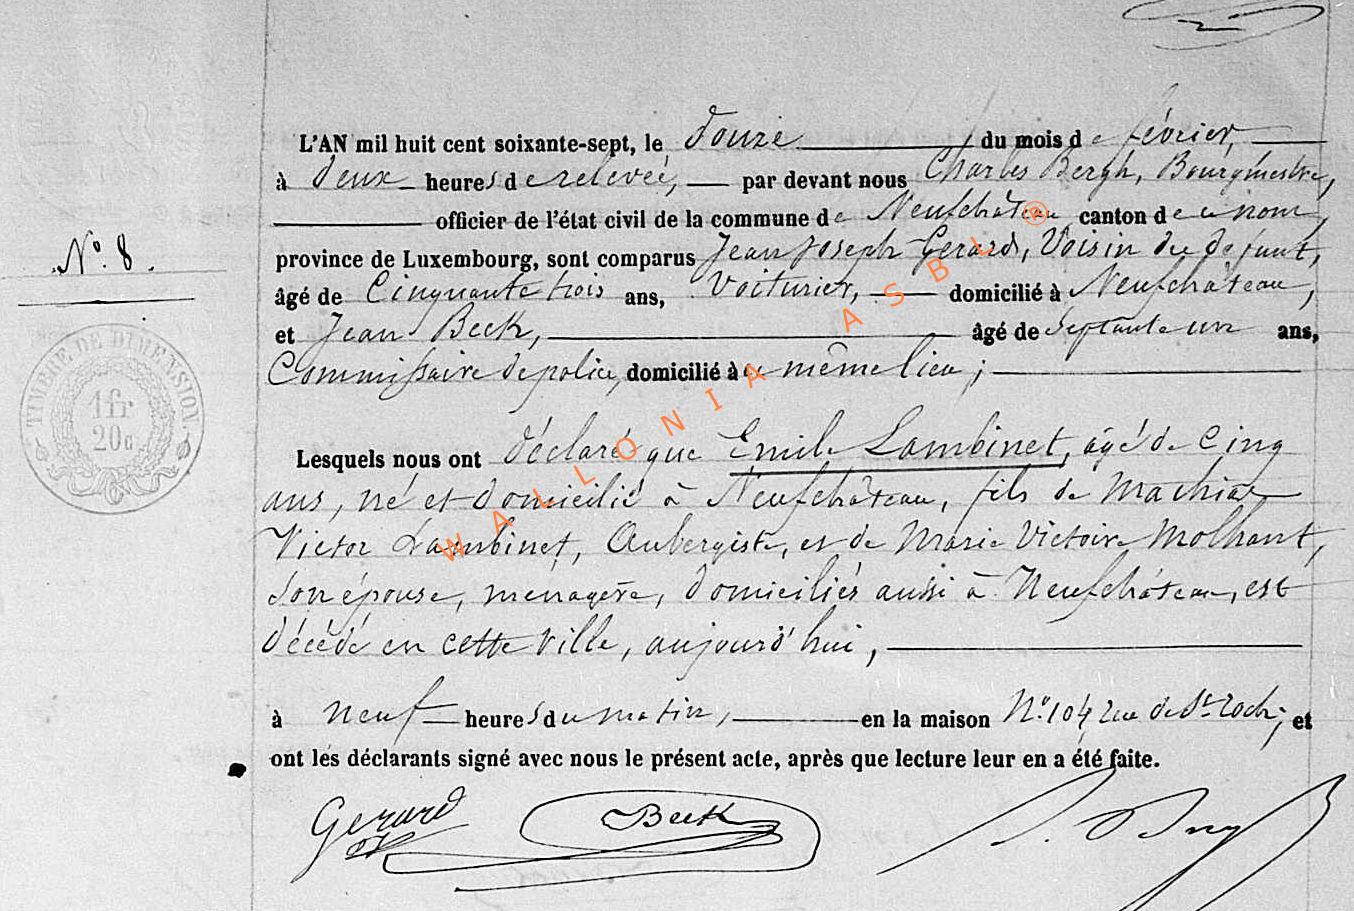 L'AN mil huit cent soixante-sept, le douze du mois de février,
à deux heures de relevée, par devant nous Charles Bergh, Bourgmestre,
officier de l'état civil de la commune de Neufchâteau canton de ce nom,
province de Luxembourg, sont comparus Jean Joseph Gerard, Voisin du défunt,
N° 8.
âgé de Cinquante trois ans, Voiturier, domicilié à Neufchâteau,
et Jean Beck, âgé de Septante un ans,
Commissaire de police, domicilié à ce même lieu ;
TIMBRE DE DIMENSION
1fr
20c
Lesquels nous ont déclaré que Emile Lambinet, âgé de Cinq
ans, né et domicilié à Neufchâteau, fils de Mathias
Victor Lambinet, Aubergiste, et de Marie Victoire Molhant,
son épouse, ménagère, domiciliés aussi à Neufchâteau, est
décédé en cette ville, aujourd'hui,
à neuf heures du matin, en la maison N° 104 rue de St Roch ; et
ont les déclarants signé avec nous le présent acte, après que lecture leur en a été faite.
Gerard Beck
WALLONIA ASBL ®